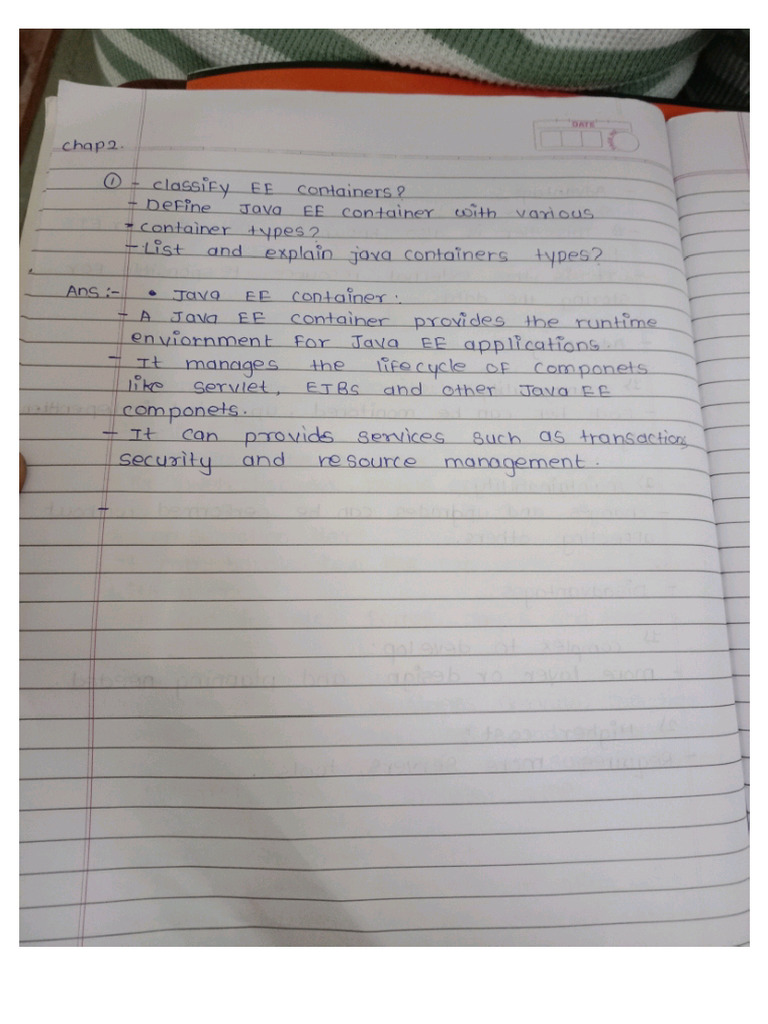 DATE
chap 2.
① - classify EE containers?
- Define Java EE container with various
- container types?
- List and explain java containers types?
Ans :- • Java EE container :
- A Java EE container provides the runtime
enviornment for Java EE applications.
- It manages the lifecycle of componets
like servlet, EJBs and other Java EE
componets.
- It can provids services such as transactions
security and resource management.
-